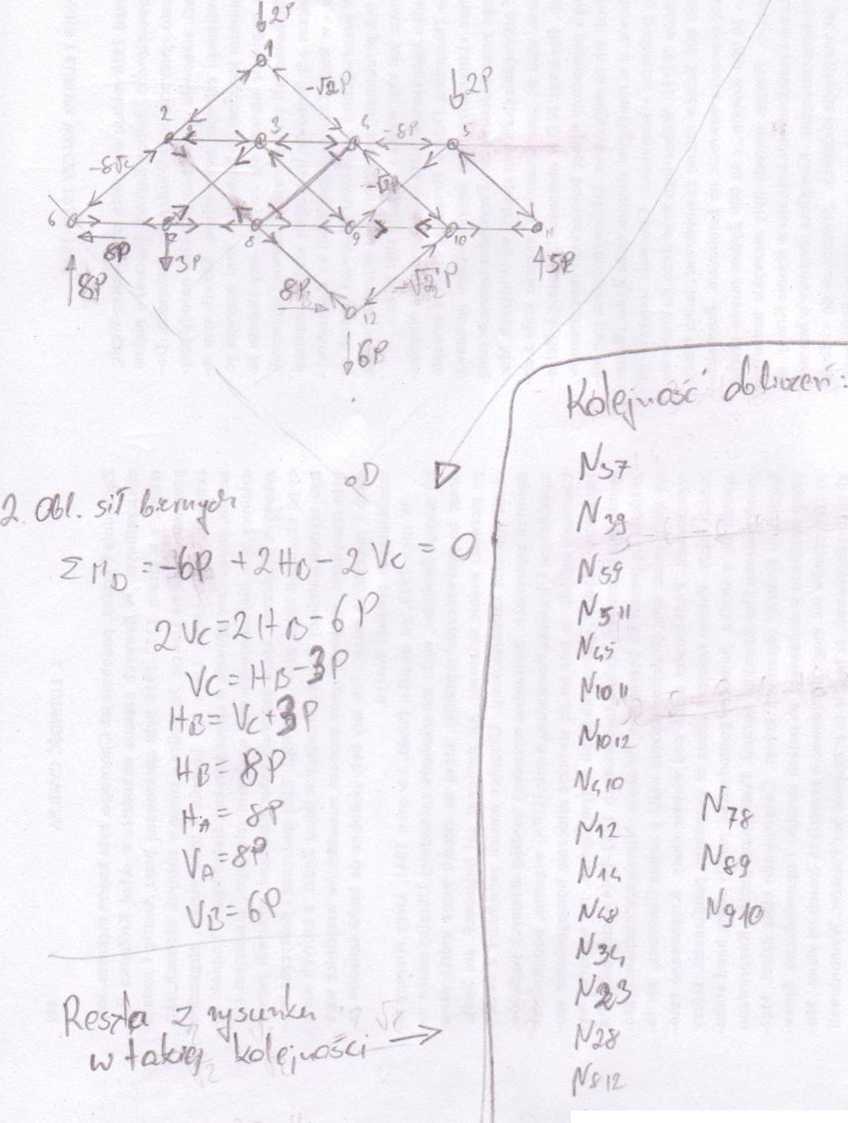 ↓2P
1
-√2P
↓2P
2
3
4
-8P
5
-8√2
-√2P
6
7
8
9
10
11
8P
↓3P
↑8P
8P
-√2P
↑5P
12
↓6P
Kolejność obliczeń:
D
2. Obl. sił biernych
ΣM_D = -6P + 2H_B - 2V_C = 0
2V_C = 2H_B - 6P
V_C = H_B - 3P
H_B = V_C + 3P
H_B = 8P
H_A = 8P
V_A = 8P
V_B = 6P
Reszta z rysunku
w takiej kolejności →
N37
N39
N59
N511
N45
N1011
N1012
N410
N12
N14
N48
N34
N23
N28
N812
N78
N89
N910